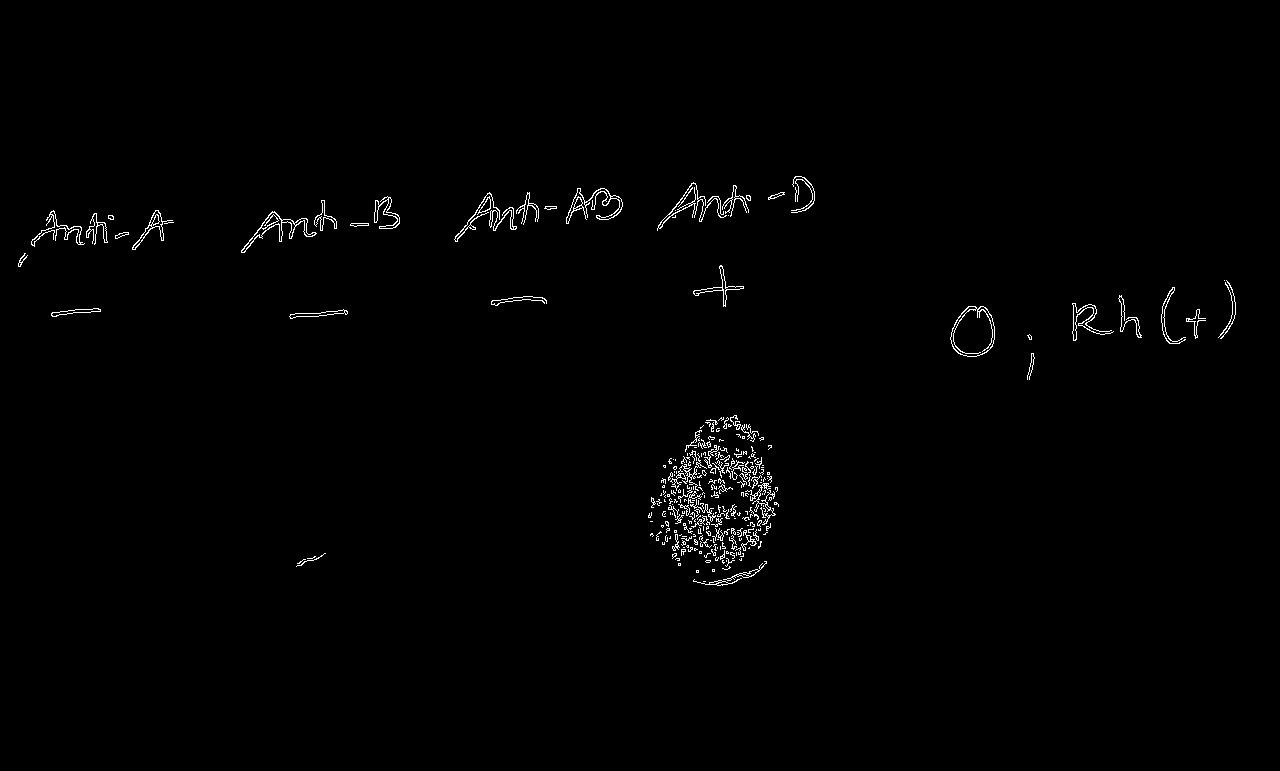 Anti-A Anti-B Anti-AB Anti-D
— — — +
O; Rh(+)